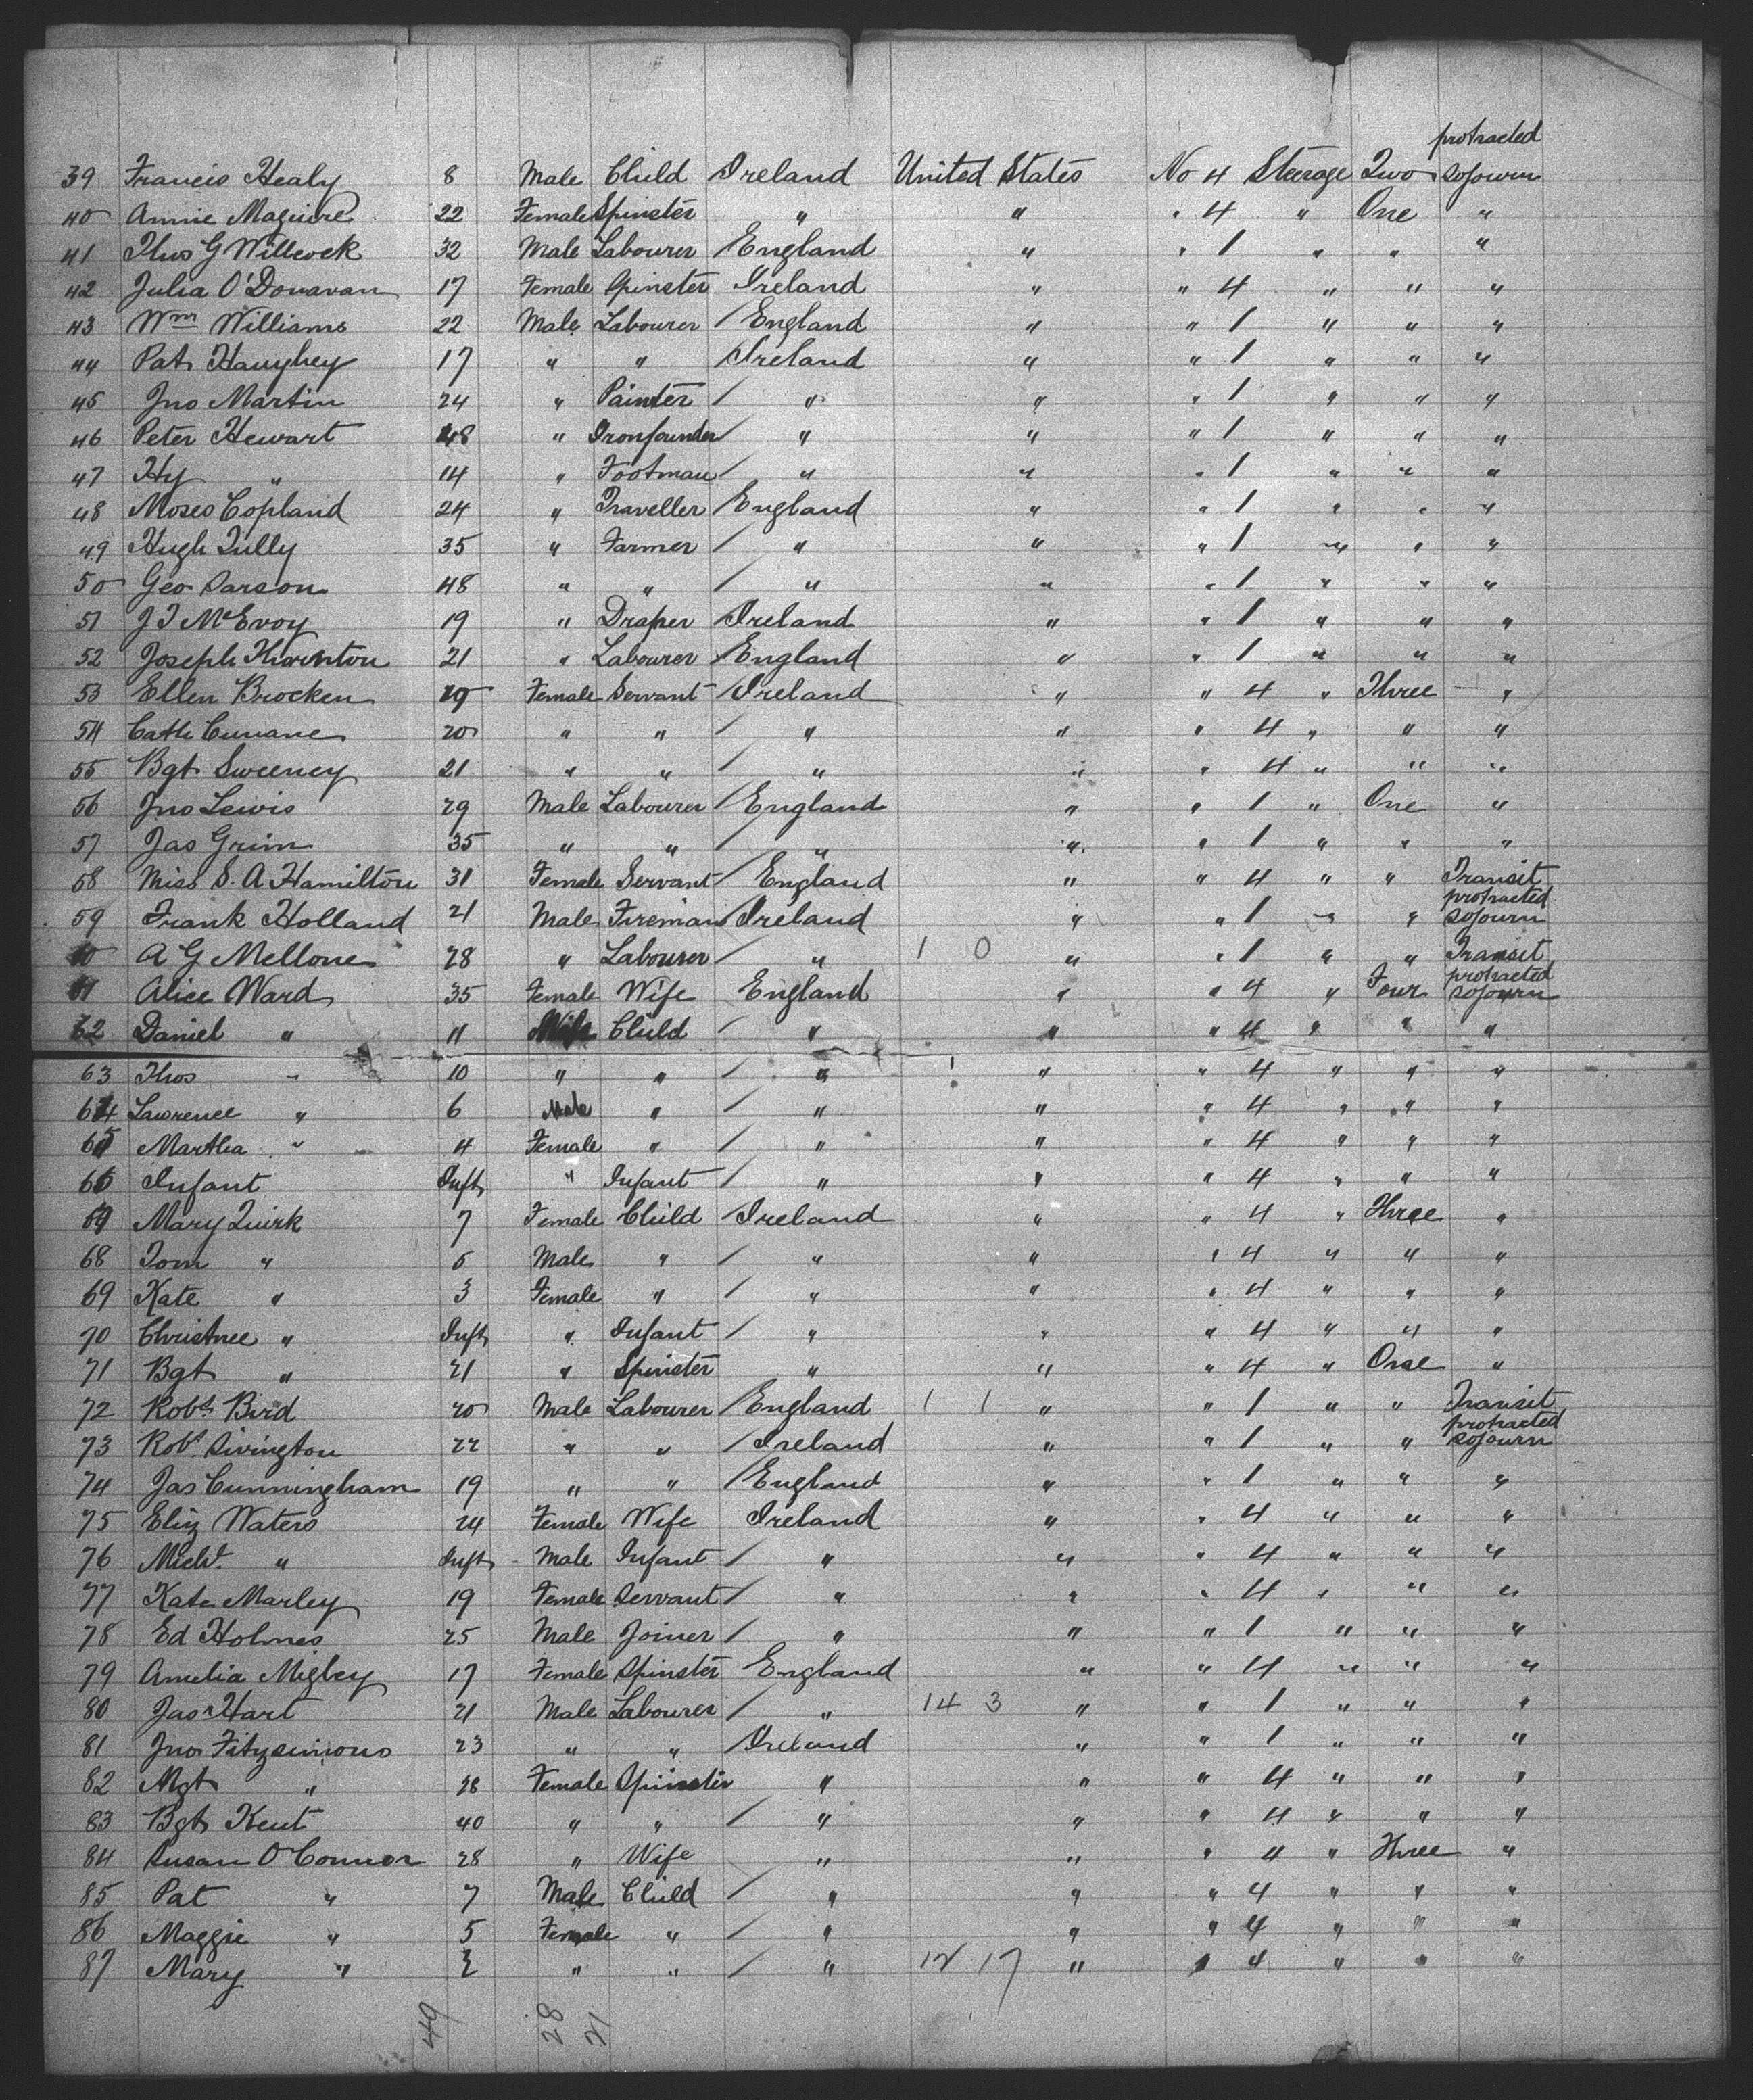 protracted
39 Francis Healy 8 Male Child Ireland United States No 4 Steerage Two sojourn
40 Annie Maguire 22 Female Spinster " " " 4 " One "
41 Thos G Willcock 32 Male Labourer / England " " 1 " " "
42 Julia O'Donavan 17 Female Spinster Ireland " " 4 " " "
43 Wm Williams 22 Male Labourer / England " " 1 " " "
44 Pat Haughey 17 " " / Ireland " " 1 " " "
45 Jno Martin 24 " Painter / " " " 1 " " "
46 Peter Hewart 48 " Ironfounder / " " " 1 " " "
47 Hy " 14 " Footman / " " " 1 " " "
48 Moses Copland 24 " Traveller / England " " 1 " " "
49 Hugh Tully 35 " Farmer / " " " 1 " " "
50 Geo Sarson 48 " " / " " " 1 " " "
51 J J McEvoy 19 " Draper / Ireland " " 1 " " "
52 Joseph Thornton 21 " Labourer / England " " 1 " " "
53 Ellen Brocken 19 Female Servant / Ireland " " 4 " Three "
54 Cath Cunane 20 " " / " " " 4 " " "
55 Bgt Sweeney 21 " " / " " " 4 " " "
56 Jno Lewis 29 Male Labourer / England " " 1 " One "
57 Jas Grim 35 " " / " " " 1 " " "
58 Miss S. A Hamilton 31 Female Servant / England " " 4 " " Transit
59 Frank Holland 21 Male Fireman / Ireland " " 1 " " protracted sojourn
60 A G Mellone 28 " Labourer / " 1 0 " " 1 " " Transit
61 Alice Ward 35 Female Wife England " " 4 " Four protracted sojourn
62 Daniel " 11 Child / " " " 4 " " "
63 Thos " 10 " " / " " " 4 " " "
64 Lawrence " 6 Male " / " " " 4 " " "
65 Martha " 4 Female " / " " " 4 " " "
66 Infant Inft " Infant / " " " 4 " " "
67 Mary Quirk 7 Female Child / Ireland " " 4 " Three "
68 Tom " 5 Male " / " " " 4 " " "
69 Kate " 3 Female " / " " " 4 " " "
70 Christnee " Inft " Infant / " " " 4 " " "
71 Bgt " 21 " Spinster " " " 4 " One "
72 Robt Bird 20 Male Labourer / England 1 1 " " 1 " " Transit
73 Robt Sivington 22 " " / Ireland " " 1 " " protracted sojourn
74 Jas Cunningham 19 " " / England " " 1 " " "
75 Eliz Waters 24 Female Wife Ireland " " 4 " " "
76 Michl " Inft Male Infant / " " " 4 " " "
77 Kate Marley 19 Female Servant / " " " 4 " " "
78 Ed Holmes 25 Male Joiner / " " " 1 " " "
79 Amelia Migley 17 Female Spinster England " " 4 " " "
80 Jas Hart 21 Male Labourer / " 14 3 " " 1 " " "
81 Jno Fitzsimons 23 " " / Ireland " " 1 " " "
82 Mgt " 28 Female Spinster " " " 4 " " "
83 Bgt Kent 40 " " / " " " 4 " " "
84 Susan O'Connor 28 " Wife " " " 4 " Three "
85 Pat " 7 Male Child / " " " 4 " " "
86 Maggie " 5 Female " / " " " 4 " " "
87 Mary " " " / " 12 17 " " 4 " " "
49 28 21